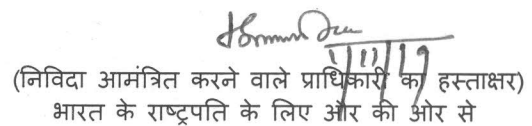 (निविदा आमंत्रित करने वाले प्राधिकारी का हस्ताक्षर)
भारत के राष्ट्रपति के लिए और की ओर से